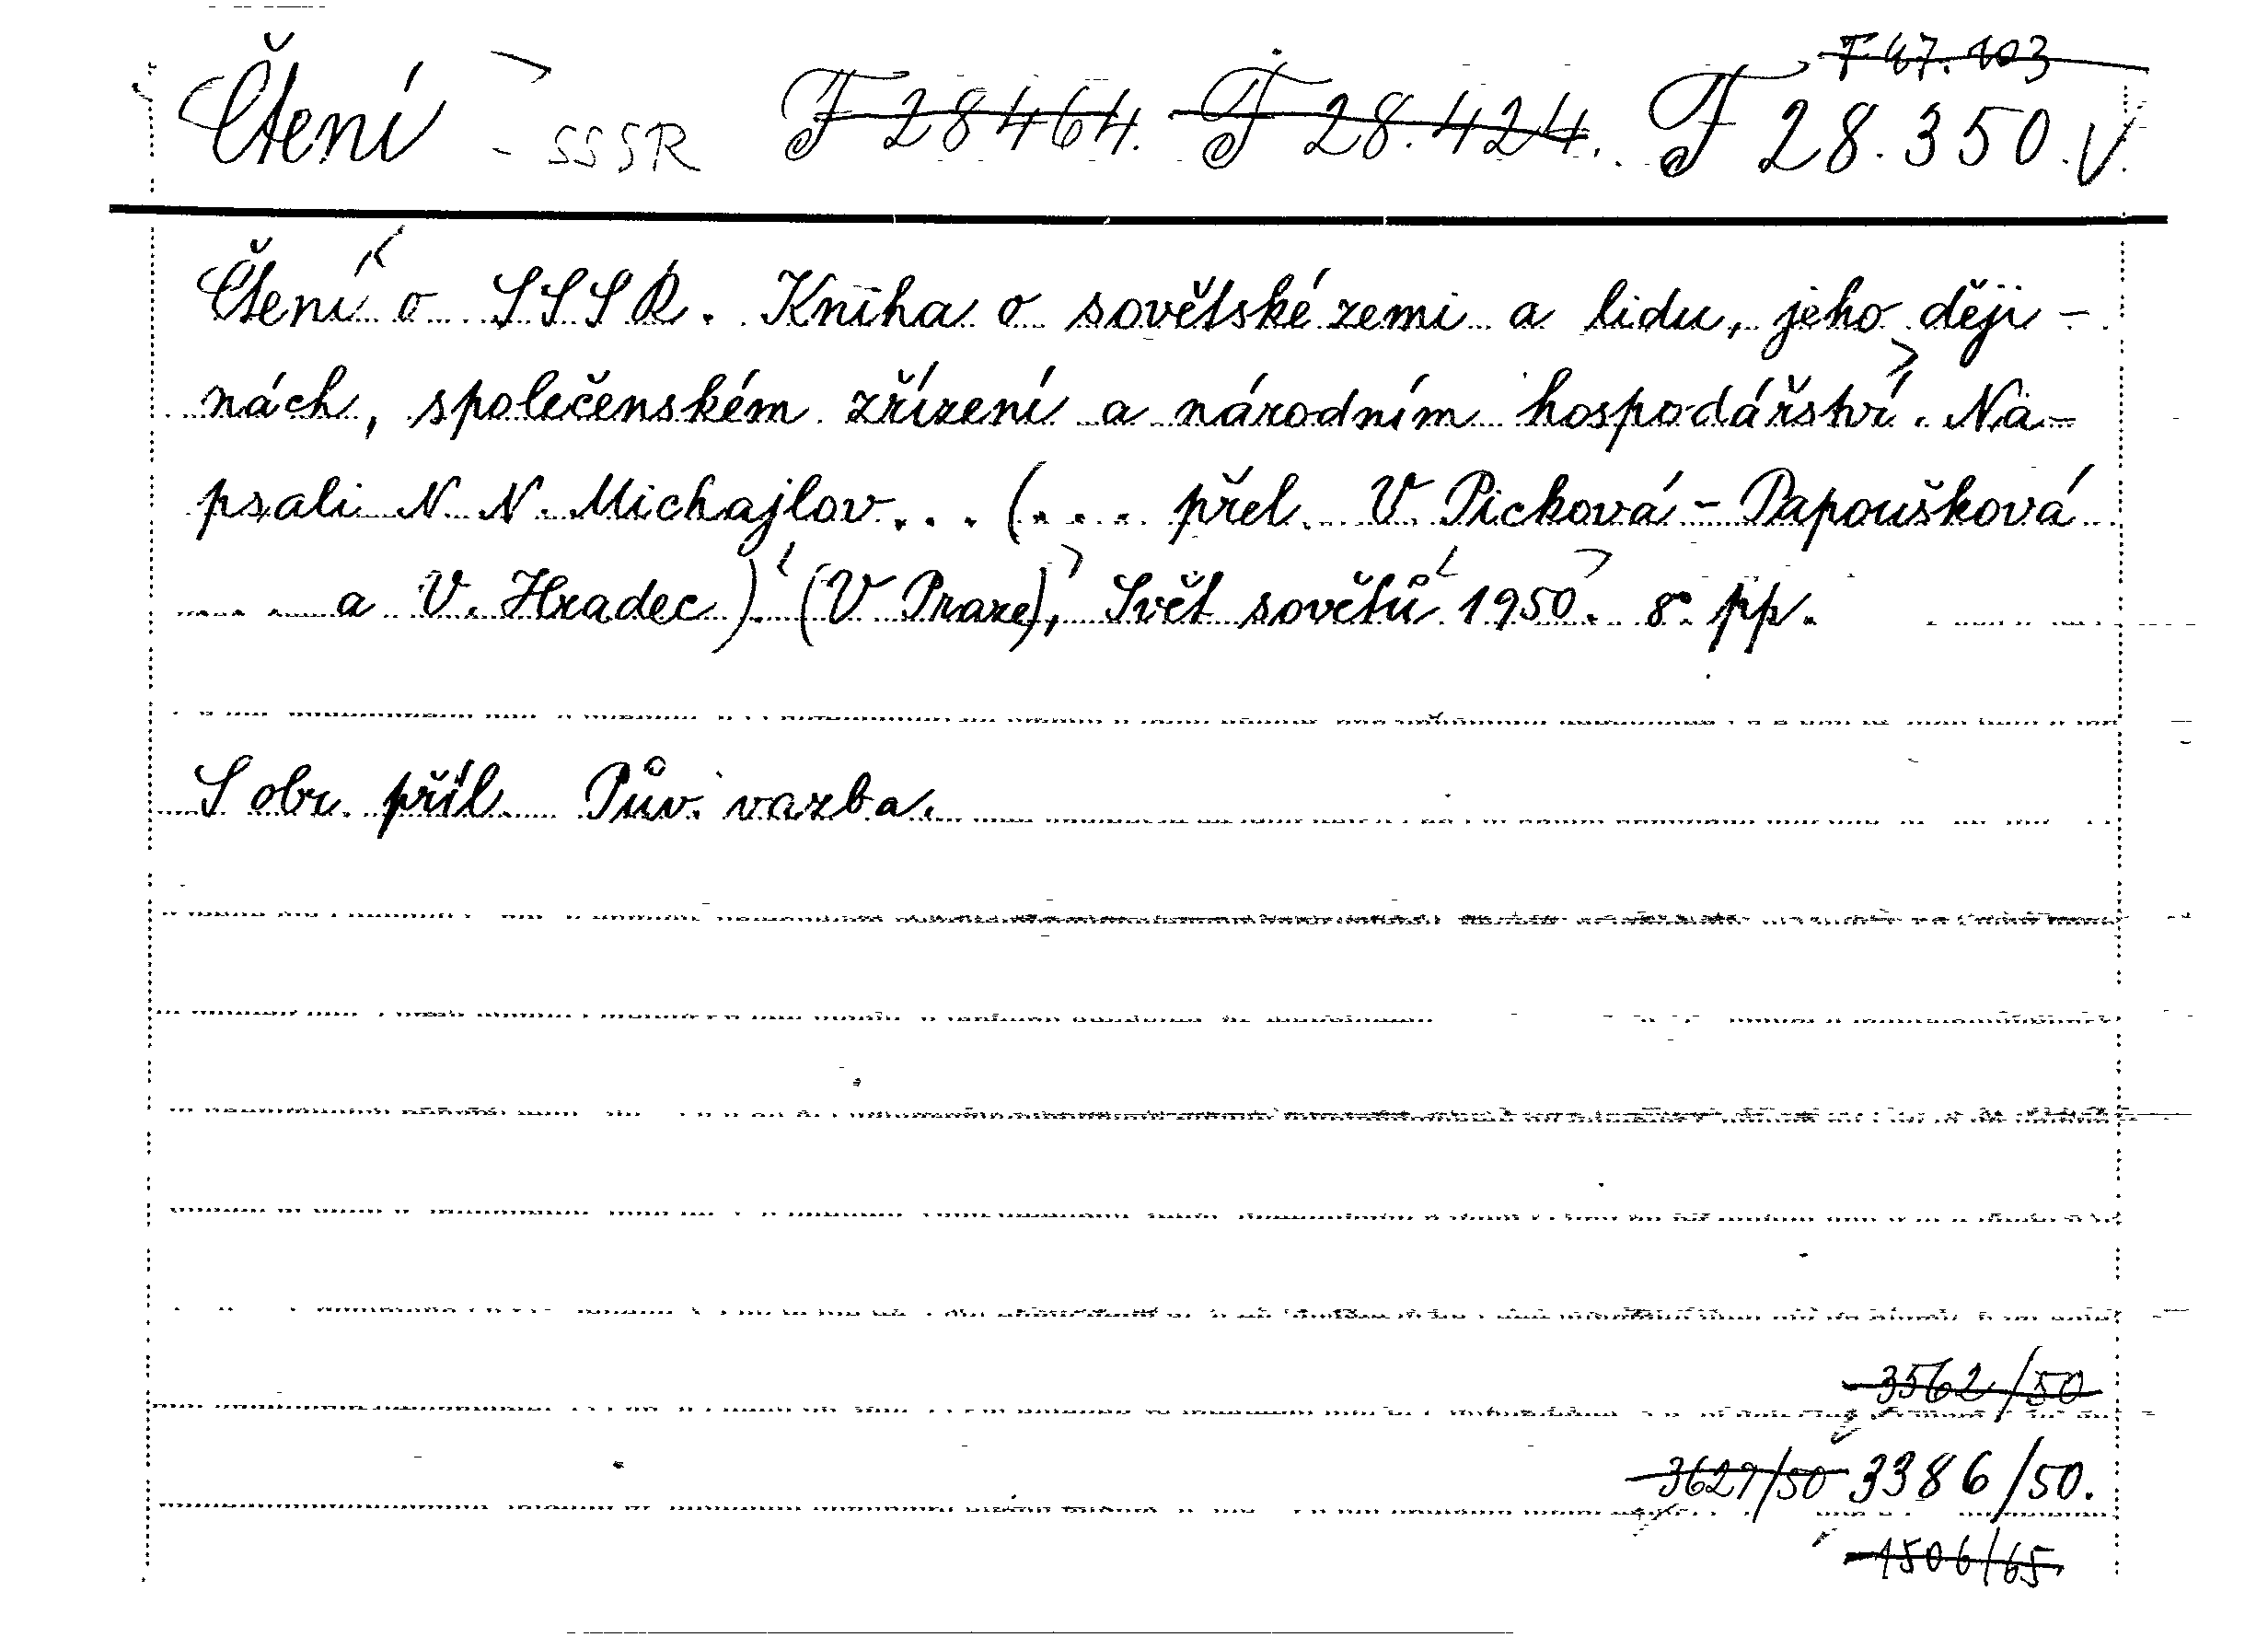 F 47.103
Čtení - SSSR F 28464. F 28.424. F 28.350.V.
Čtení o SSSR. Kniha o sovětské zemi a lidu, jeho ději-
nách, společenském zřízení a národním hospodářství. Na-
psali N. N. Michajlov... (... přel. V. Picková-Papoušková
a V. Hradec). (V Praze), Svět sovětů 1950. 8° pp.
S obr. příl. Pův. vazba.
3562/50
3627/50 3386/50.
1506/65